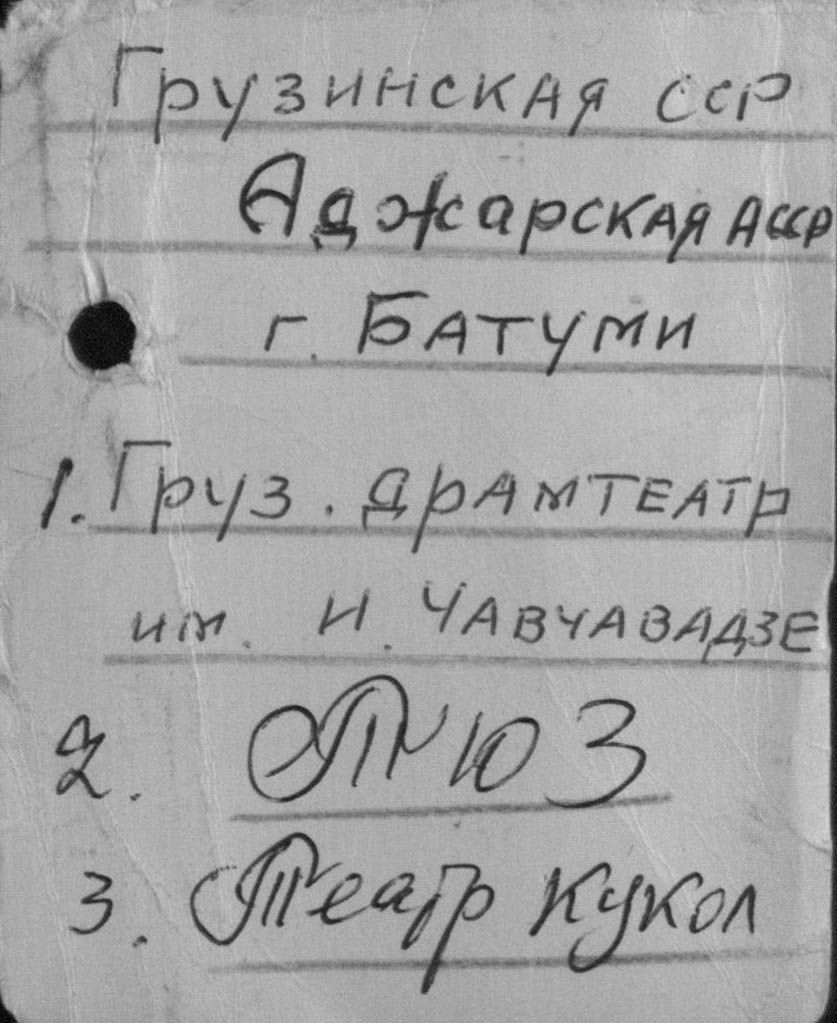 Грузинская ССР
Аджарская АССР
г. Батуми
1. Груз. драмтеатр
им. И. Чавчавадзе
2. ТЮЗ
3. Театр кукол